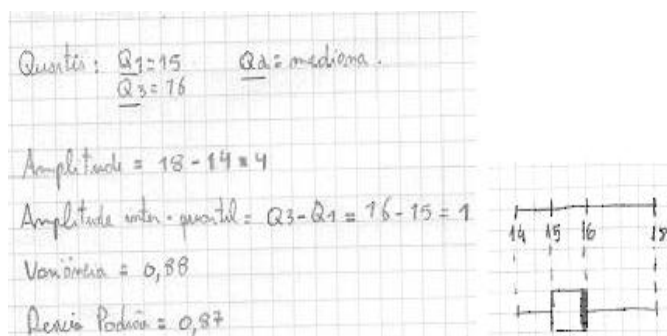 Quartis: Q1=15 Q2= mediana.
Q3=16
Amplitude = 18-14=4
Amplitude inter-quartil= Q3-Q1 = 16-15=1
Variância = 0,88
Desvio Padrão = 0,87
14 15 16 18